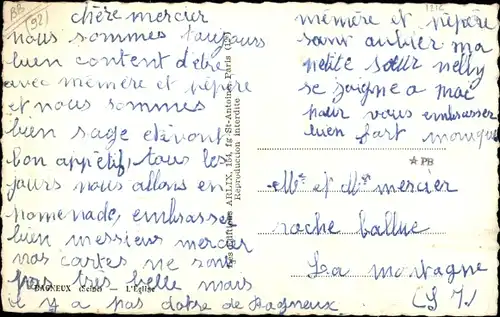 BB
(92)
chère mercier
nous sommes toujours
bien content d'être
avec mémère et pépère
et nous sommes
bien sage et
bon appétif, tous les
jours nous allons en
promenade, embrasser
bien messieurs mercier
nos cartes ne son
pas très belle mais
il y a pas dotse de Bagneux
mémère et pépère
sans oublier ma
petite sœur nelly
se soigne a mac
pour vous embrasser
bien fort monique
Les Editions ARLIX, 154, fg St-Antoine, Paris (12e)
Reproduction interdite
PB
Mr et Mme mercier
roche ballue
La montagne
BAGNEUX (Seine) L'Eglise